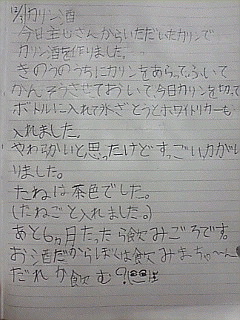 12/1カリン酒
今日主じさんからいただいたカリンで
カリン酒を作りました。
きのうのうちにカリンをあらってふいて
かんそうさせておいて今日カリンを切って
ボトルに入れて氷ざとうとホワイトリカーも
入れました。
やわらかいと思ったけどすっごい力がい
りました。
たねは茶色でした。
(たねごと入れました。)
あと6ヵ月たったら飲みごろです。
お酒だからぼくは飲みまちぇ〜ん
だれか飲む?